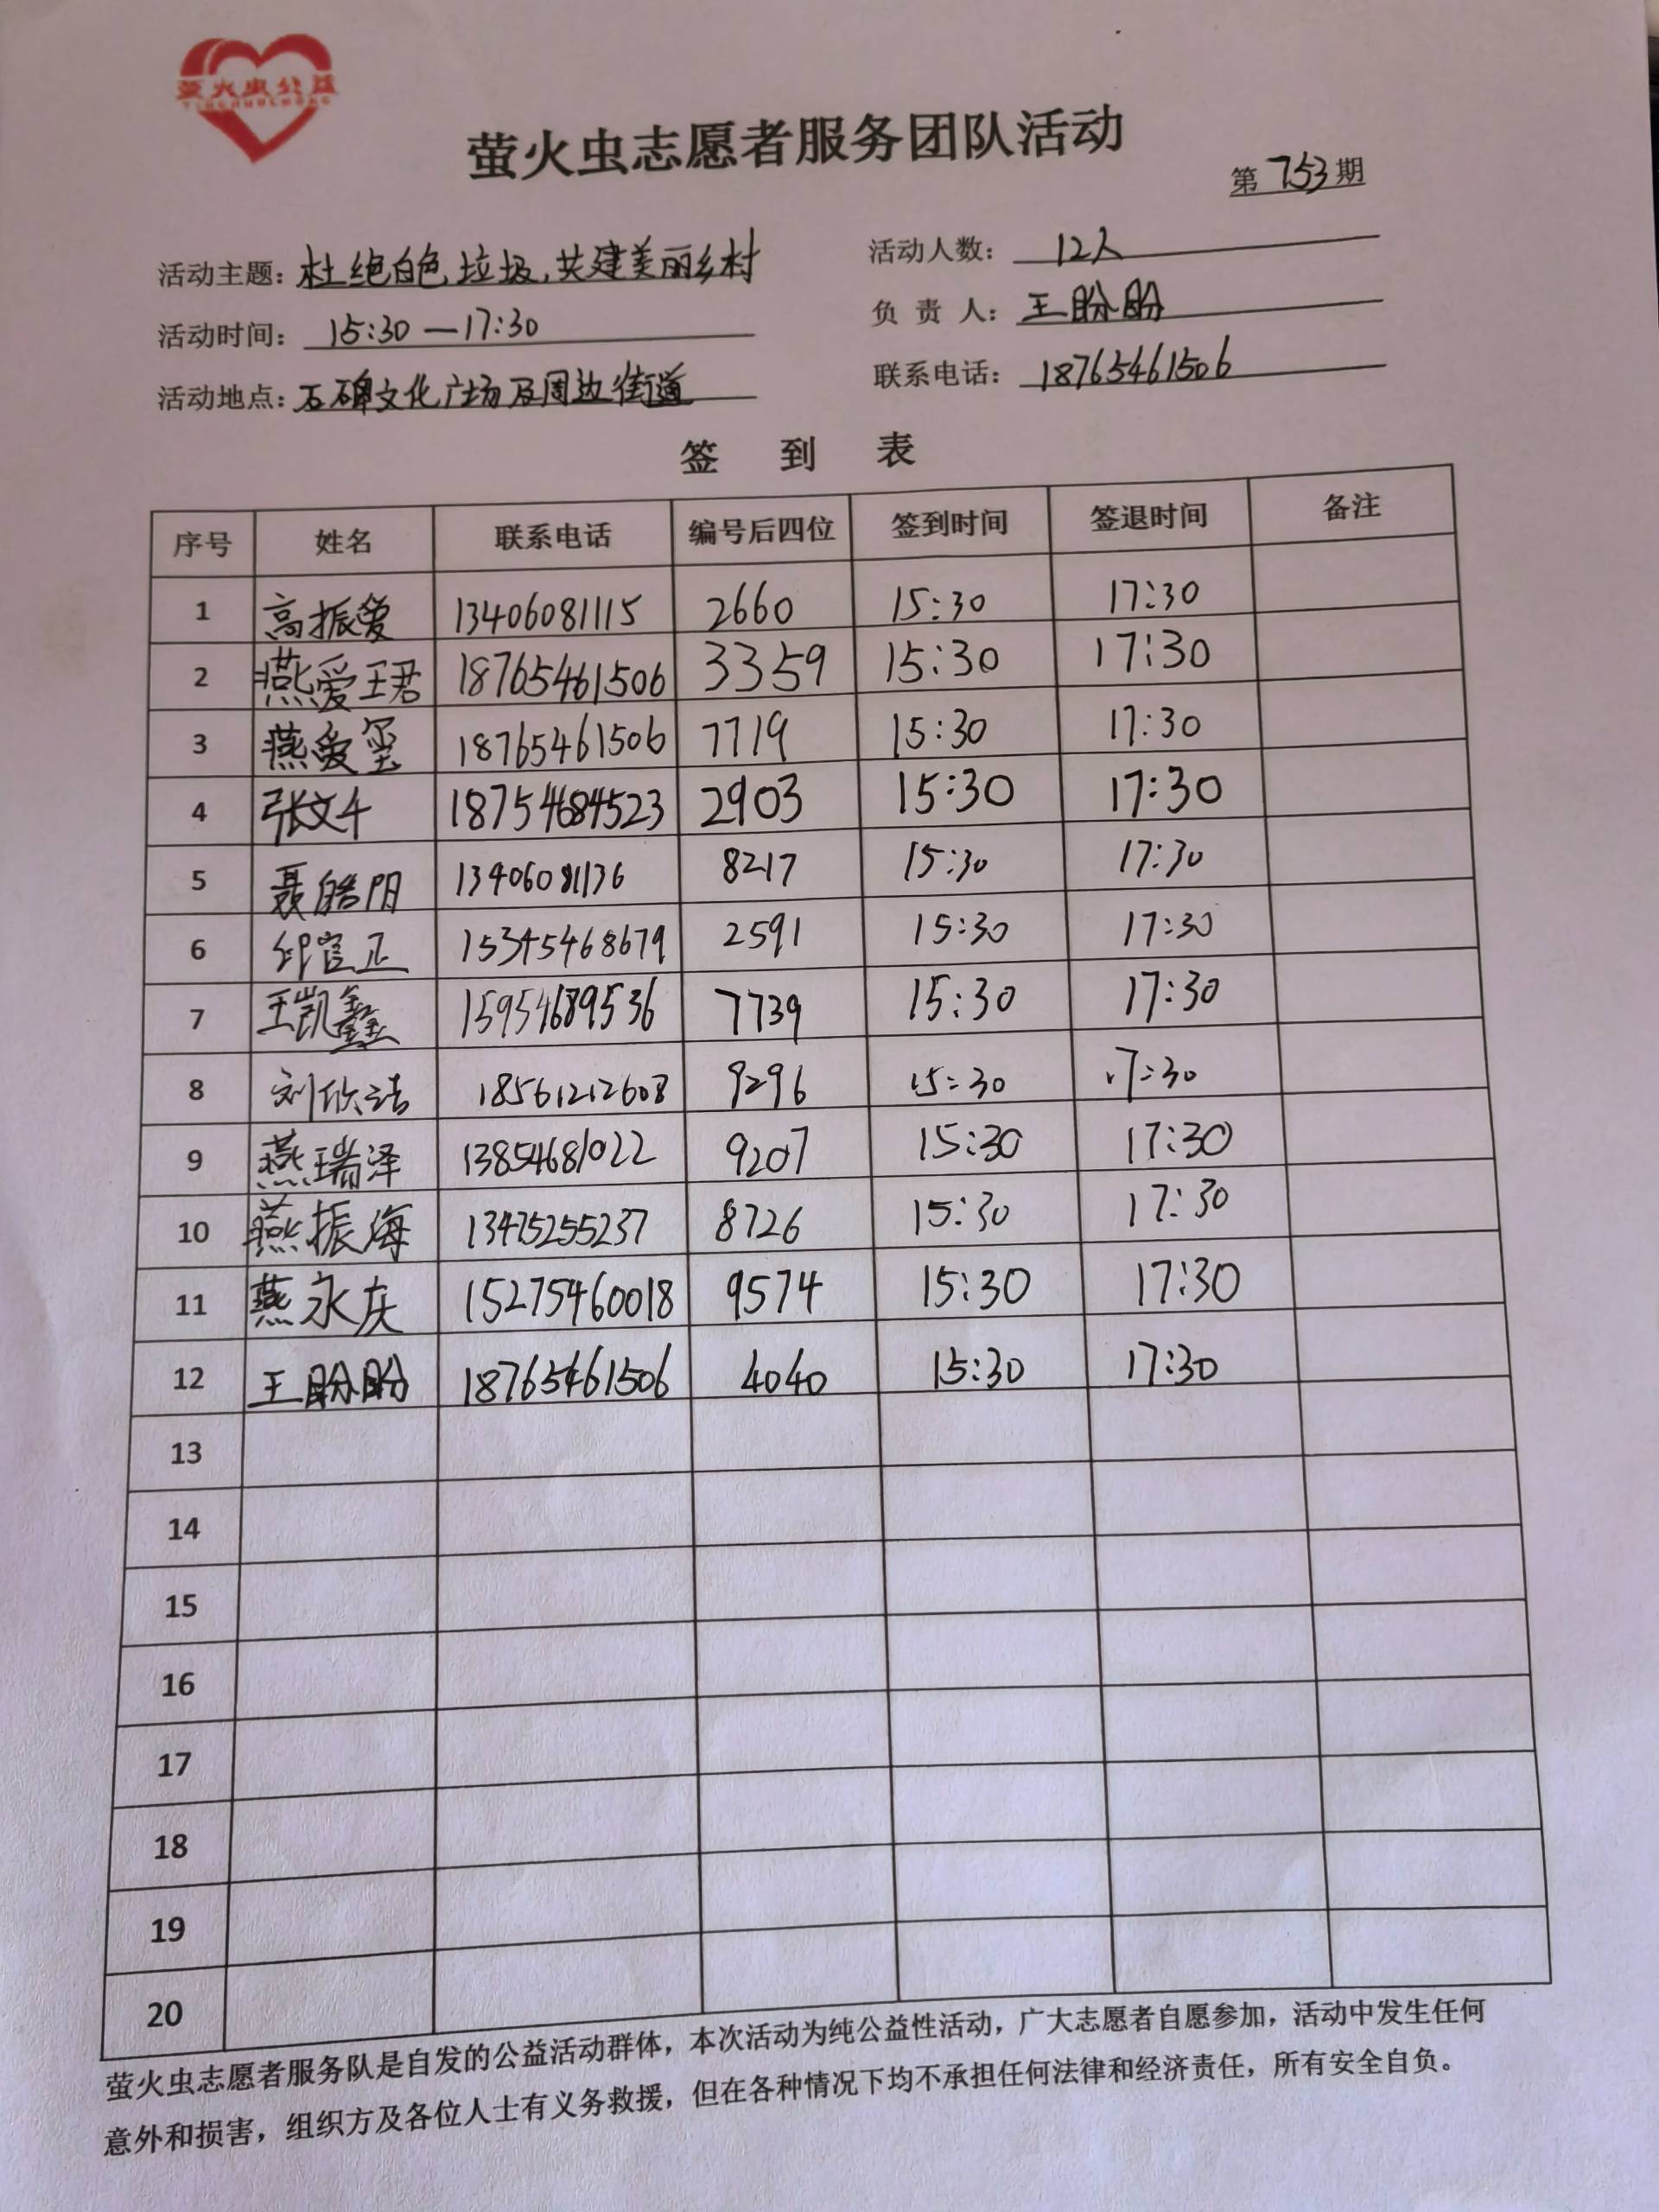 萤火虫公益
YINGHUOCHONG
萤火虫志愿者服务团队活动
第 753 期
活动主题：杜绝白色垃圾，共建美丽乡村 活动人数：12人
活动时间：15:30—17:30 负 责 人：王盼盼
活动地点：石碑文化广场及周边街道 联系电话：18765461506
签 到 表
序号 姓名 联系电话 编号后四位 签到时间 签退时间 备注
1 高振爱 13406081115 2660 15:30 17:30
2 燕爱珺 18765461506 3359 15:30 17:30
3 燕爱玺 18765461506 7719 15:30 17:30
4 张文千 18754684523 2903 15:30 17:30
5 聂皓阳 13406081136 8217 15:30 17:30
6 15345468679 2591 15:30 17:30
7 王凯鑫 15954689536 7739 15:30 17:30
8 刘欣洁 18561212608 9296 15:30 17:30
9 燕瑞泽 13854681022 9207 15:30 17:30
10 燕振海 13475255237 8726 15:30 17:30
11 燕永庆 15275460018 9574 15:30 17:30
12 王盼盼 18765461506 4040 15:30 17:30
13
14
15
16
17
18
19
20
萤火虫志愿者服务队是自发的公益活动群体，本次活动为纯公益性活动，广大志愿者自愿参加，活动中发生任何
意外和损害，组织方及各位人士有义务救援，但在各种情况下均不承担任何法律和经济责任，所有安全自负。